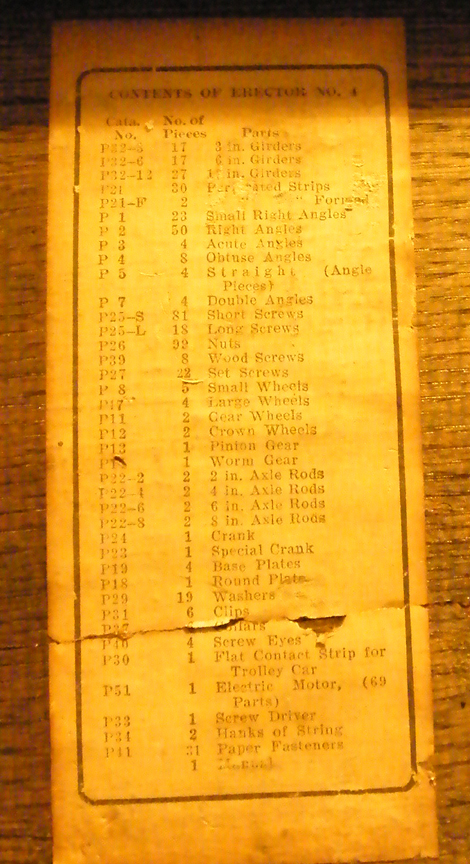 CONTENTS OF ERECTOR NO. 4
Cata. No. of
No. Pieces Parts
P32-3 17 3 in. Girders
P32-6 17 6 in. Girders
P32-12 27 in. Girders
P21 30 Perforated Strips
P21-F 2 " " Formed
P 1 23 Small Right Angles
P 2 50 Right Angles
P 3 4 Acute Angles
P 4 8 Obtuse Angles
P 5 4 Straight (Angle
Pieces)
P 7 4 Double Angles
P25-S 81 Short Screws
P25-L 18 Long Screws
P26 99 Nuts
P39 8 Wood Screws
P27 22 Set Screws
P 8 5 Small Wheels
P47 4 Large Wheels
P11 2 Gear Wheels
P12 2 Crown Wheels
P13 1 Pinion Gear
1 Worm Gear
P22-2 2 2 in. Axle Rods
P22-4 2 4 in. Axle Rods
P22-6 2 6 in. Axle Rods
P22-8 2 8 in. Axle Rods
P24 1 Crank
P23 1 Special Crank
P19 4 Base Plates
P18 1 Round Plate
P29 19 Washers
P31 6 Clips
Collars
P40 4 Screw Eyes
P30 1 Flat Contact Strip for
Trolley Car
P51 1 Electric Motor, (69
Parts)
P33 1 Screw Driver
P34 2 Hanks of String
P41 31 Paper Fasteners
1 Manual